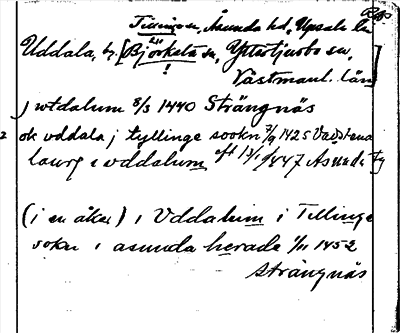 Tillinge sn, Åsunda hd, Upsala län
Uddala, by. [Björksta sn, Yttertjurbo sn,
!
Västmanl. län]
j wtdalum 8/3 1440 Strängnäs
2 ok vddala j tyllinge sookn 7/9 1425 Vadstena
laurj e vddalum eft 13/1 1447 Asunda
(i en åker) i Uddalum i Tillinge
sokn i asunda herade 1/11 1452
Strängnäs